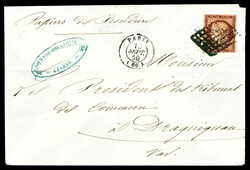 Papiers de Procédure
PARIS
50
(60)
Monsieur
Le President du Tribunal
de Commerce
à Draguignan
Var.